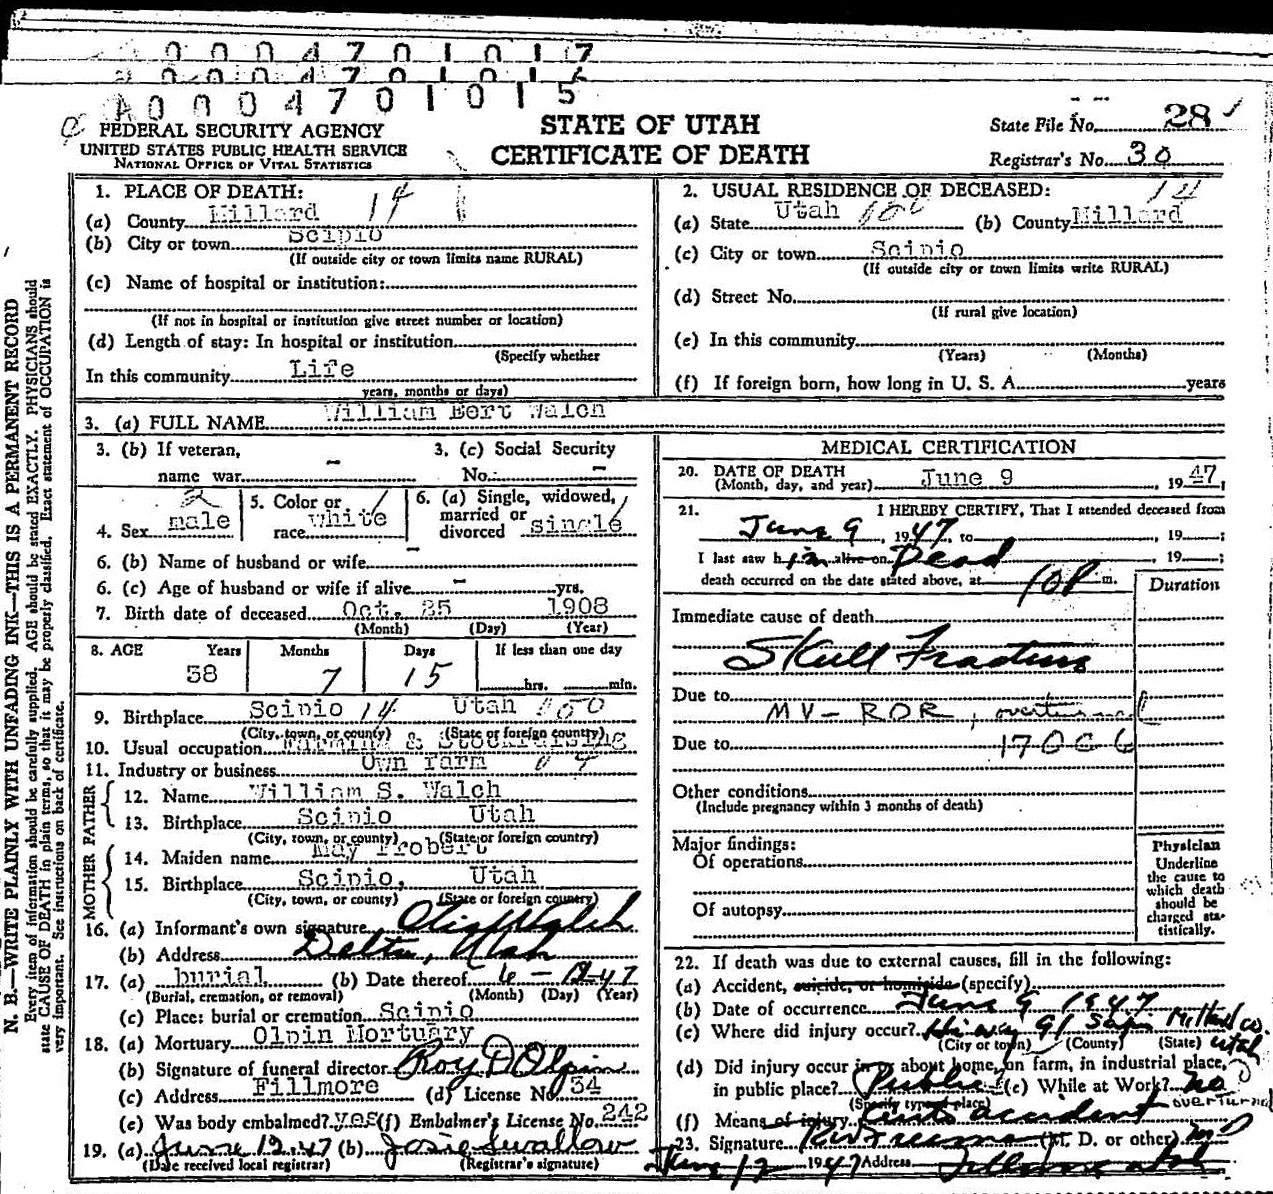 0 0 0 4 7 0 1 0 1 7
0 0 0 4 7 0 1 0 1 6
A 0 0 0 4 7 0 1 0 1 5
FEDERAL SECURITY AGENCY
UNITED STATES PUBLIC HEALTH SERVICE
NATIONAL OFFICE OF VITAL STATISTICS
STATE OF UTAH
CERTIFICATE OF DEATH
State File No. 28
Registrar's No. 30
N. B.—WRITE PLAINLY WITH UNFADING INK—THIS IS A PERMANENT RECORD
Every item of information should be carefully supplied. AGE should be stated EXACTLY. PHYSICIANS should
state CAUSE OF DEATH in plain terms, so that it may be properly classified. Exact statement of OCCUPATION is
very important. See instructions on back of certificate.
1. PLACE OF DEATH: 14
(a) County Millard
(b) City or town Scipio
(If outside city or town limits name RURAL)
(c) Name of hospital or institution:
(If not in hospital or institution give street number or location)
(d) Length of stay: In hospital or institution
(Specify whether
In this community Life
years, months or days)
2. USUAL RESIDENCE OF DECEASED: 14
(a) State Utah (b) County Millard
(c) City or town Scipio
(If outside city or town limits write RURAL)
(d) Street No.
(If rural give location)
(e) In this community
(Years) (Months)
(f) If foreign born, how long in U. S. A. years
3. (a) FULL NAME William Bert Walch
3. (b) If veteran, name war -
3. (c) Social Security No. -
4. Sex male
5. Color or race white
6. (a) Single, widowed, married or divorced single
6. (b) Name of husband or wife -
6. (c) Age of husband or wife if alive - yrs.
7. Birth date of deceased Oct. 25 1908
(Month) (Day) (Year)
8. AGE Years Months Days If less than one day
38 7 15 hrs. min.
9. Birthplace Scipio 14 Utah
(City, town, or county) (State or foreign country)
10. Usual occupation Farming & Stockraising
11. Industry or business Own farm
FATHER
12. Name William S. Walch
13. Birthplace Scipio Utah
(City, town, or county) (State or foreign country)
MOTHER
14. Maiden name May Probert
15. Birthplace Scipio, Utah
(City, town, or county) (State or foreign country)
16. (a) Informant's own signature Walch
(b) Address Delta, Utah
17. (a) burial (b) Date thereof 6-12-47
(Burial, cremation, or removal) (Month) (Day) (Year)
(c) Place: burial or cremation Scipio
18. (a) Mortuary Olpin Mortuary
(b) Signature of funeral director Roy D Olpin
(c) Address Fillmore (d) License No. 34
(e) Was body embalmed? yes (f) Embalmer's License No. 242
19. (a) June 12.47 (b) Josie Swallow
(Date received local registrar) (Registrar's signature)
MEDICAL CERTIFICATION
20. DATE OF DEATH
(Month, day, and year) June 9 1947;
21. I HEREBY CERTIFY, That I attended deceased from
June 9, 1947, to , 19 ;
I last saw him alive on Dead 19 ;
death occurred on the date stated above, at 10P m.
Duration
Immediate cause of death
Skull Fracture
Due to MV-ROR, overturned
Due to 170c6
Other conditions
(Include pregnancy within 3 months of death)
Major findings:
Of operations
Of autopsy
Physician
Underline
the cause to
which death
should be
charged sta-
tistically.
22. If death was due to external causes, fill in the following:
(a) Accident, suicide, or homicide (specify)
(b) Date of occurrence June 9 1947
(c) Where did injury occur? Hiway 91 Millard Co. Utah
(City or town) (County) (State)
(d) Did injury occur in or about home, on farm, in industrial place,
in public place? Public (e) While at Work? no
(Specify type of place)
overturned
(f) Means of injury accident
23. Signature (M. D. or other) MD
June 12 1947 Address Fillmore Utah